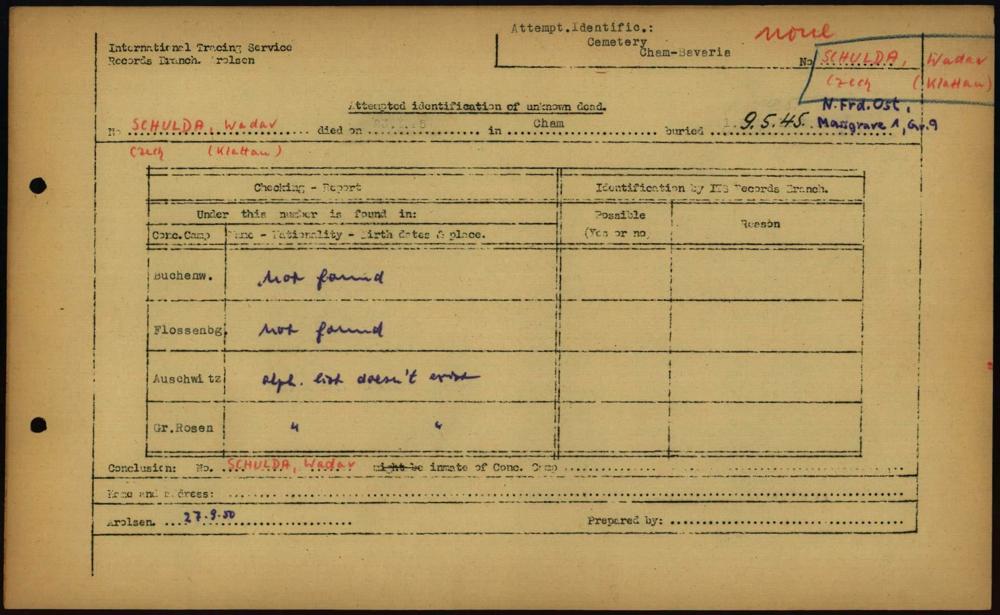 Attempt.Identific.:
Cemetery
Cham-Bavaria
none
International Tracing Service
Records Branch. Arolsen
No SCHULDA, Wadav
Czech (Klattau)
N.Frd.Ost,
Massgrave 1, Gr.9
Attempted identification of unknown dead.
No SCHULDA, Wadav died on in Cham buried 9.5.45.
Czech (Klattau)
Checking - Report
Identification by ITS Records Branch.
Under this number is found in:
Possible
(Yes or no)
Reason
Conc.Camp Name - Nationality - Birth dates & place.
Buchenw. not found
Flossenbg. not found
Auschwitz alph. list doesn't exist
Gr.Rosen " "
Conclusion: No. SCHULDA, Wadav might be inmate of Conc. Camp
Name and address:
Arolsen. 27.9.50
Prepared by: